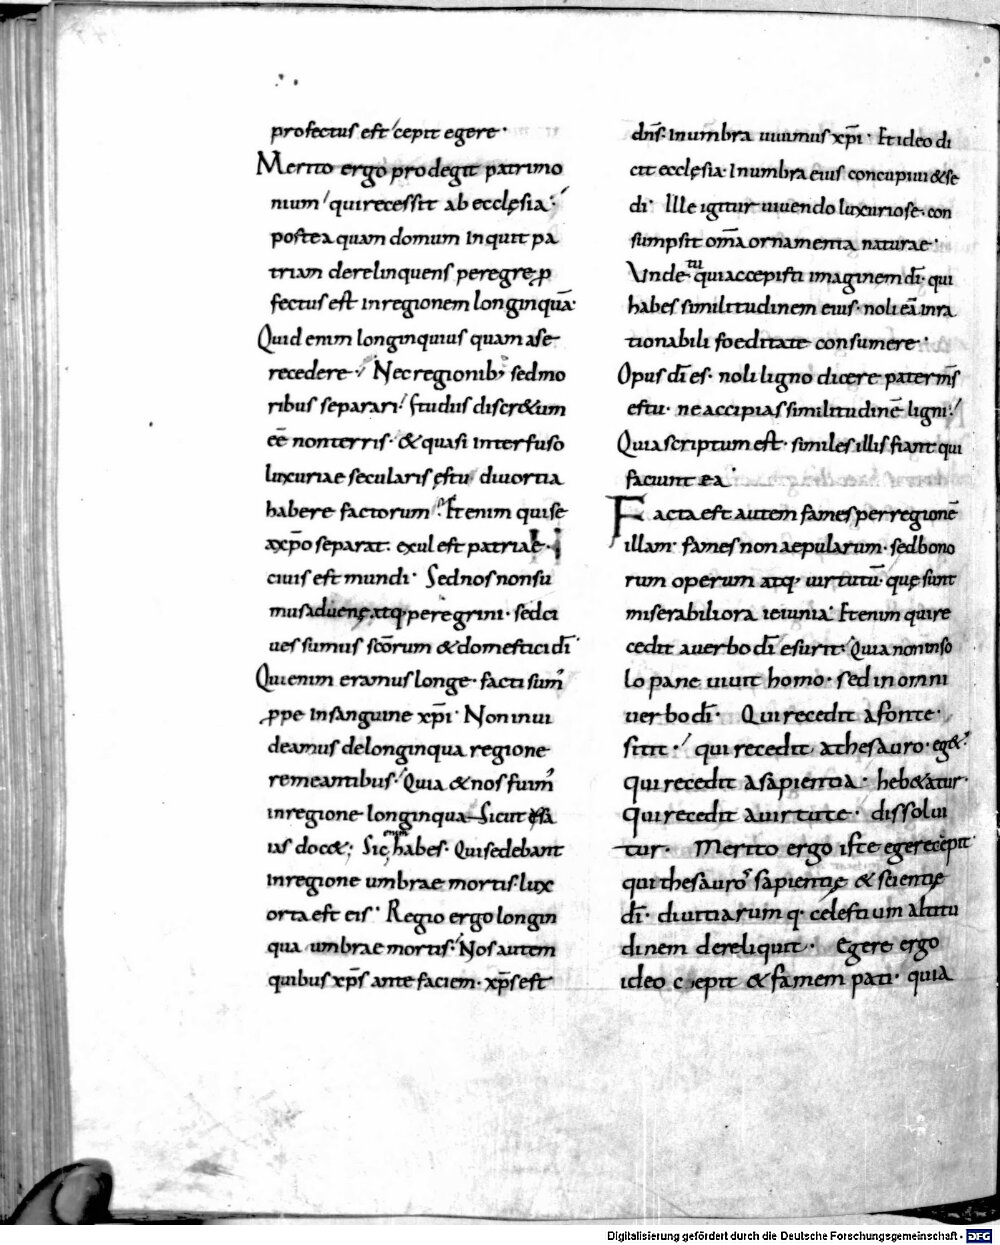 profectus est cepit egere·
Merito ergo prodegit patrimo
nium quirecessit ab ecclęsia·
postea quam domum Inquit pa
triam derelinquens peregre ꝓ
fectus est inregionem longinquā·
Quid enim longinquius quam ase
recedere· Nec regionib; sed mo
ribus separari· studiis discr&um
eē nonterris· & quasi interfuso
luxuriae secularis ęstu diuortia
habere factorum· Etenim quise
axp̄o separat· exul est patriae·
ciuis est mundi· Sed nos non su
mus aduenę atq; peregrini· sed ci
ues sumus sc̄orum & domestici dī
Qui enim eramus longe· facti sum᾽
ꝓpe insanguine xp̄i· Non inui
deamus delonginqua regione
remeantibus· Quia & nos fuim᾽
inregione longinqua Sicut esa
ias doc&; Sic enim habes· Qui sedebant
inregione umbrae mortis· lux
orta est eis· Regio ergo longin
qua umbrae mortis· Nos autem
quibus xp̄s ante faciem· xp̄s est
dn̄s· Inumbra uiuimus xp̄i· Et ideo di
cit ecclęsia· Inumbra eius concupiui & se
di· Ille igitur uiuendo luxuriose· con
sumpsit om̄a ornamenta naturae·
Unde tu qui accepisti imaginem dī· qui
habes similitudinem eius· noli eā inra
tionabili foeditate consumere·
Opus dī es· noli ligno dicere pater m̄s
es tu· ne accipias similitudinē ligni·
Quia scriptum est· similes illis fiant qui
faciunt ea·
Facta est autem fames per regionē
illam· fames non aepularum· sed bono
rum operum atq; uirtutū· quę sunt
miserabiliora ieiunia· Etenim qui re
cedit auerbo dī esurit· Quia non inso
lo pane uiuit homo· sed in omni
uerbo dī· Qui recedit afonte·
sitit· qui recedit athesauro· eg&·
qui recedit asapientia· heb&atur·
qui recedit auirtute· dissolui
tur· Merito ergo iste egere cepit
qui thesauros sapientię & scientię
dī· diuitiarum q· cęlestium altitu
dinem dereliquit· Egere ergo
ideo coepit & famem pati· quia
Digitalisierung gefördert durch die Deutsche Forschungsgemeinschaft - DFG